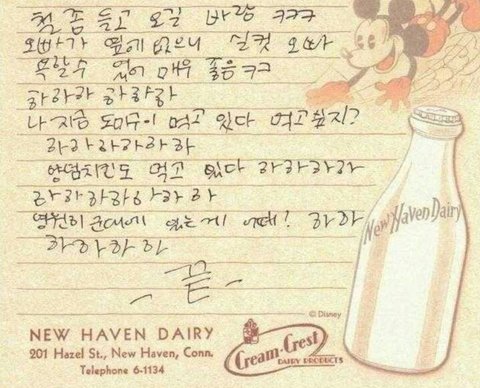 철 좀 들고 오길 바람 ㅋㅋㅋ
오빠가 옆에 없으니 실컷 오빠
욕할수 있어 매우 좋음 ㅋㅋ
하하하 하하하
나 지금 도미수이 먹고 있다 먹고싶지?
하하하하하하
양념치킨도 먹고 있다 하하하하
하하하하하하하하
영원히 군대에 있는게 어때? 하하
하하하하
- 끝 -
New Haven Dairy
© Disney
NEW HAVEN DAIRY
201 Hazel St., New Haven, Conn.
Telephone 6-1134
Cream-Crest
DAIRY PRODUCTS